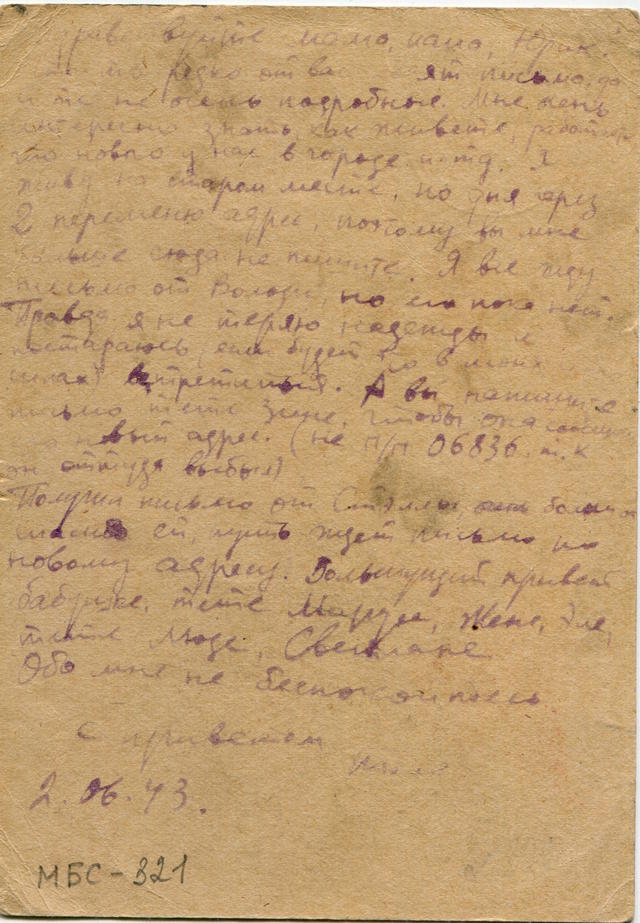 Здравствуйте мама, папа, Юрик.
редко от вас письма, да
и те не очень подробные. Мне очень
интересно знать, как живете, работаете
что нового у нас в городе и т.д. Я
живу на старом месте, но дня через
2 переменю адрес, поэтому вы мне
больше сюда не пишите. Я все жду
письмо от Володи, но его пока нет.
Правда я не теряю надежды и
постараюсь, если будет в моих
силах встретиться. А вы напишите
письмо тете Зине, чтобы она сообщила
его новый адрес. (не п/п 06836 т.к
он оттуда выбыл)
Получил письмо от Стэллы, очень большое
спасибо ей, пусть ждет письмо по
новому адресу. Большущий привет
бабушке, тете Марусе, Жене, Эле,
тете Люде, Светлане
Обо мне не беспокойтесь
С приветом
2.06.43.
МБС-821